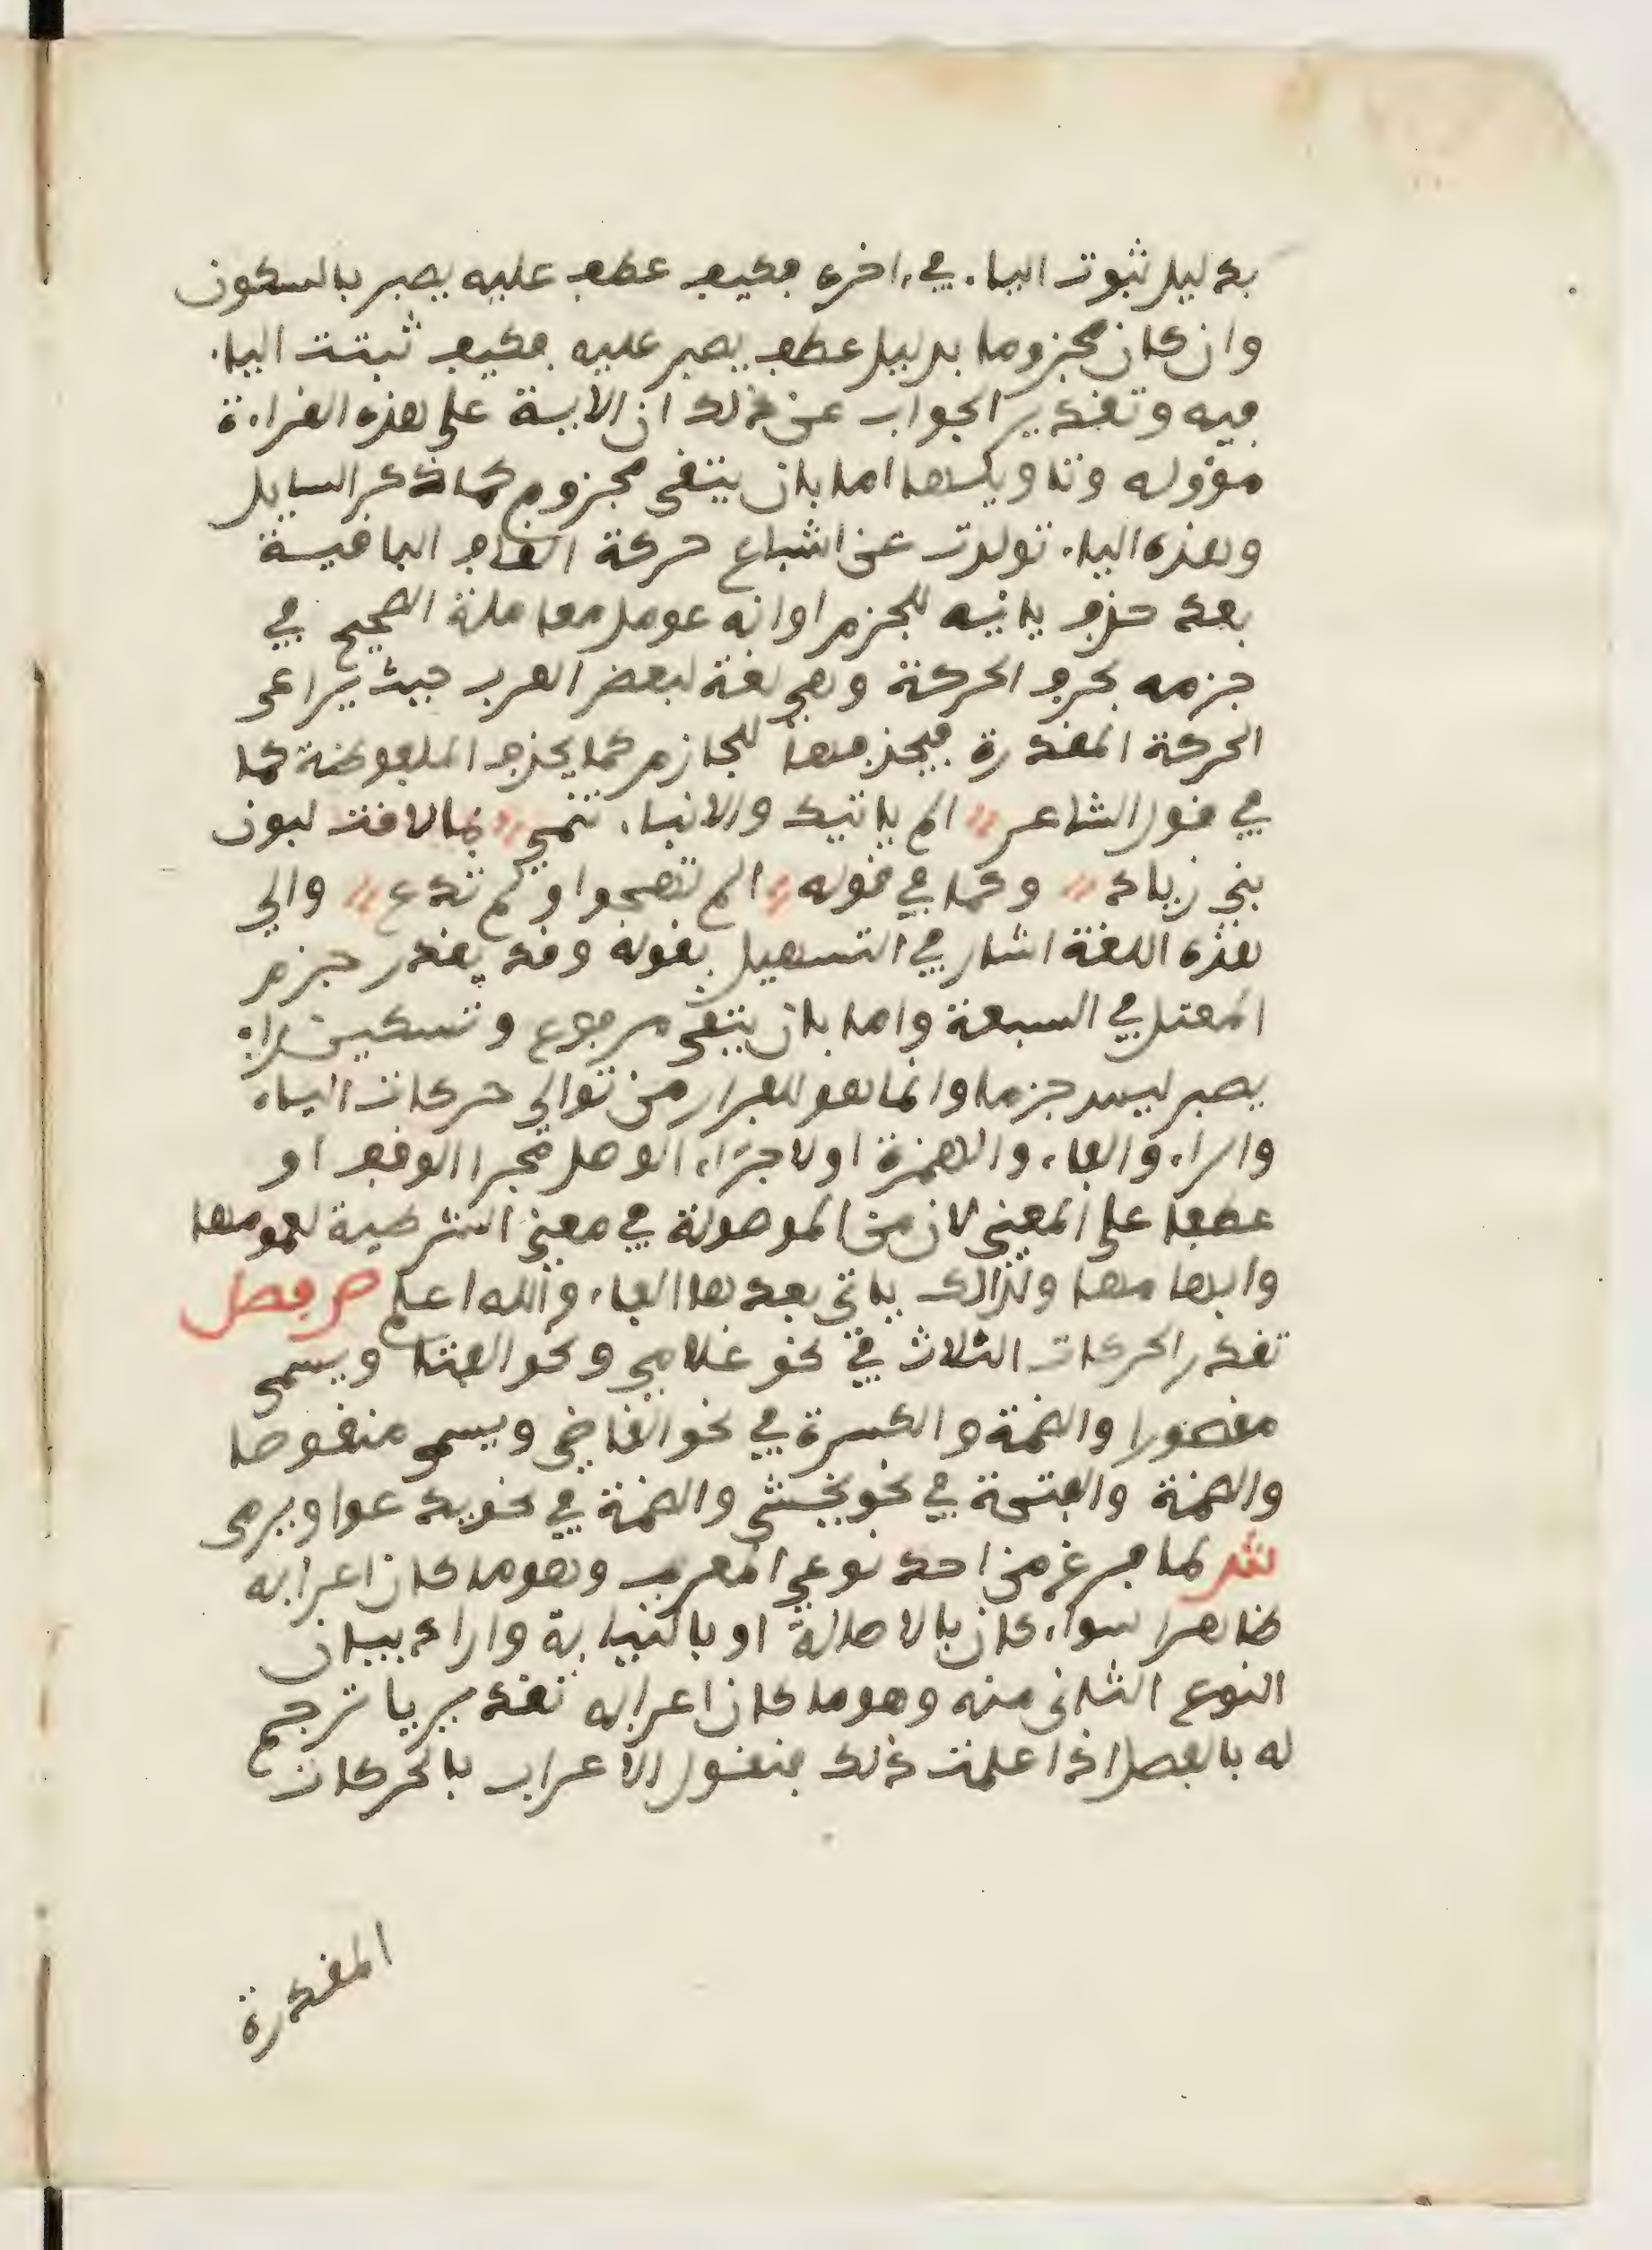 بدليل ثبوت الياء في ءاخره فكيف عطف عليه يصبر بالسكون
وان كان مجزوما بدليل عطف يصبر عليه فكيف ثبتت الياء
فيه وتقدير الجواب عن ذلك ان الاية على هذه القراءة
مؤوله وتاويلها اما بان يتقى مجزوم كما ذكر السايل
وهذه الياء تولدت عن اشباع حركة القاف الباقية
بعد حذف يائيه للجزم او انه عومل معاملة الصحيح في
جزمه بحذف الحركة وهي لغة لبعض العرب حيث يراعى
الحركة المقدرة فيحذفها للجازم كما يحذف الملفوظة كما
في قول الشاعر " الم ياتيك والانباء تنمي " بما لاقت لبون
بني زياد " وكما في قوله " الم تهجوا ولم تدع " والى
هذه اللغة اشار في التسهيل بقوله وقد يقدر جزم
المعتل في السبعة واما بان يتقي مرفوع وتسكين راء
يصبر ليس جزما وانما هو للفرار من توالي حركات الياء
والراء والفاء والهمزة او لاجراء الوصل مجرا الوقف او
عطفا على المعنى لان من الموصولة في معنى الشرطية لعمومها
وابهامها ولذالك ياتى بعدها الفاء والله اعلم ص فصل
تقدر الحركات الثلاث في نحو غلامي ونحو الفتا ويسمى
مقصورا والضمة والكسرة في نحو القاضي ويسمى منقوصا
والضمة والفتحة في نحو يخشى والضمة في نحو يدعوا ويرمى
ش لما فرغ من احد نوعي المعرب وهو ما كان اعرابه
ظاهرا سواء كان بالاصالة او بالنيابة واراد بيان
النوع الثانى منه وهو ما كان اعرابه تقديريا ترجم
له بالفصل اذا علمت ذلك فنقول الاعراب بالحركات
المقدرة